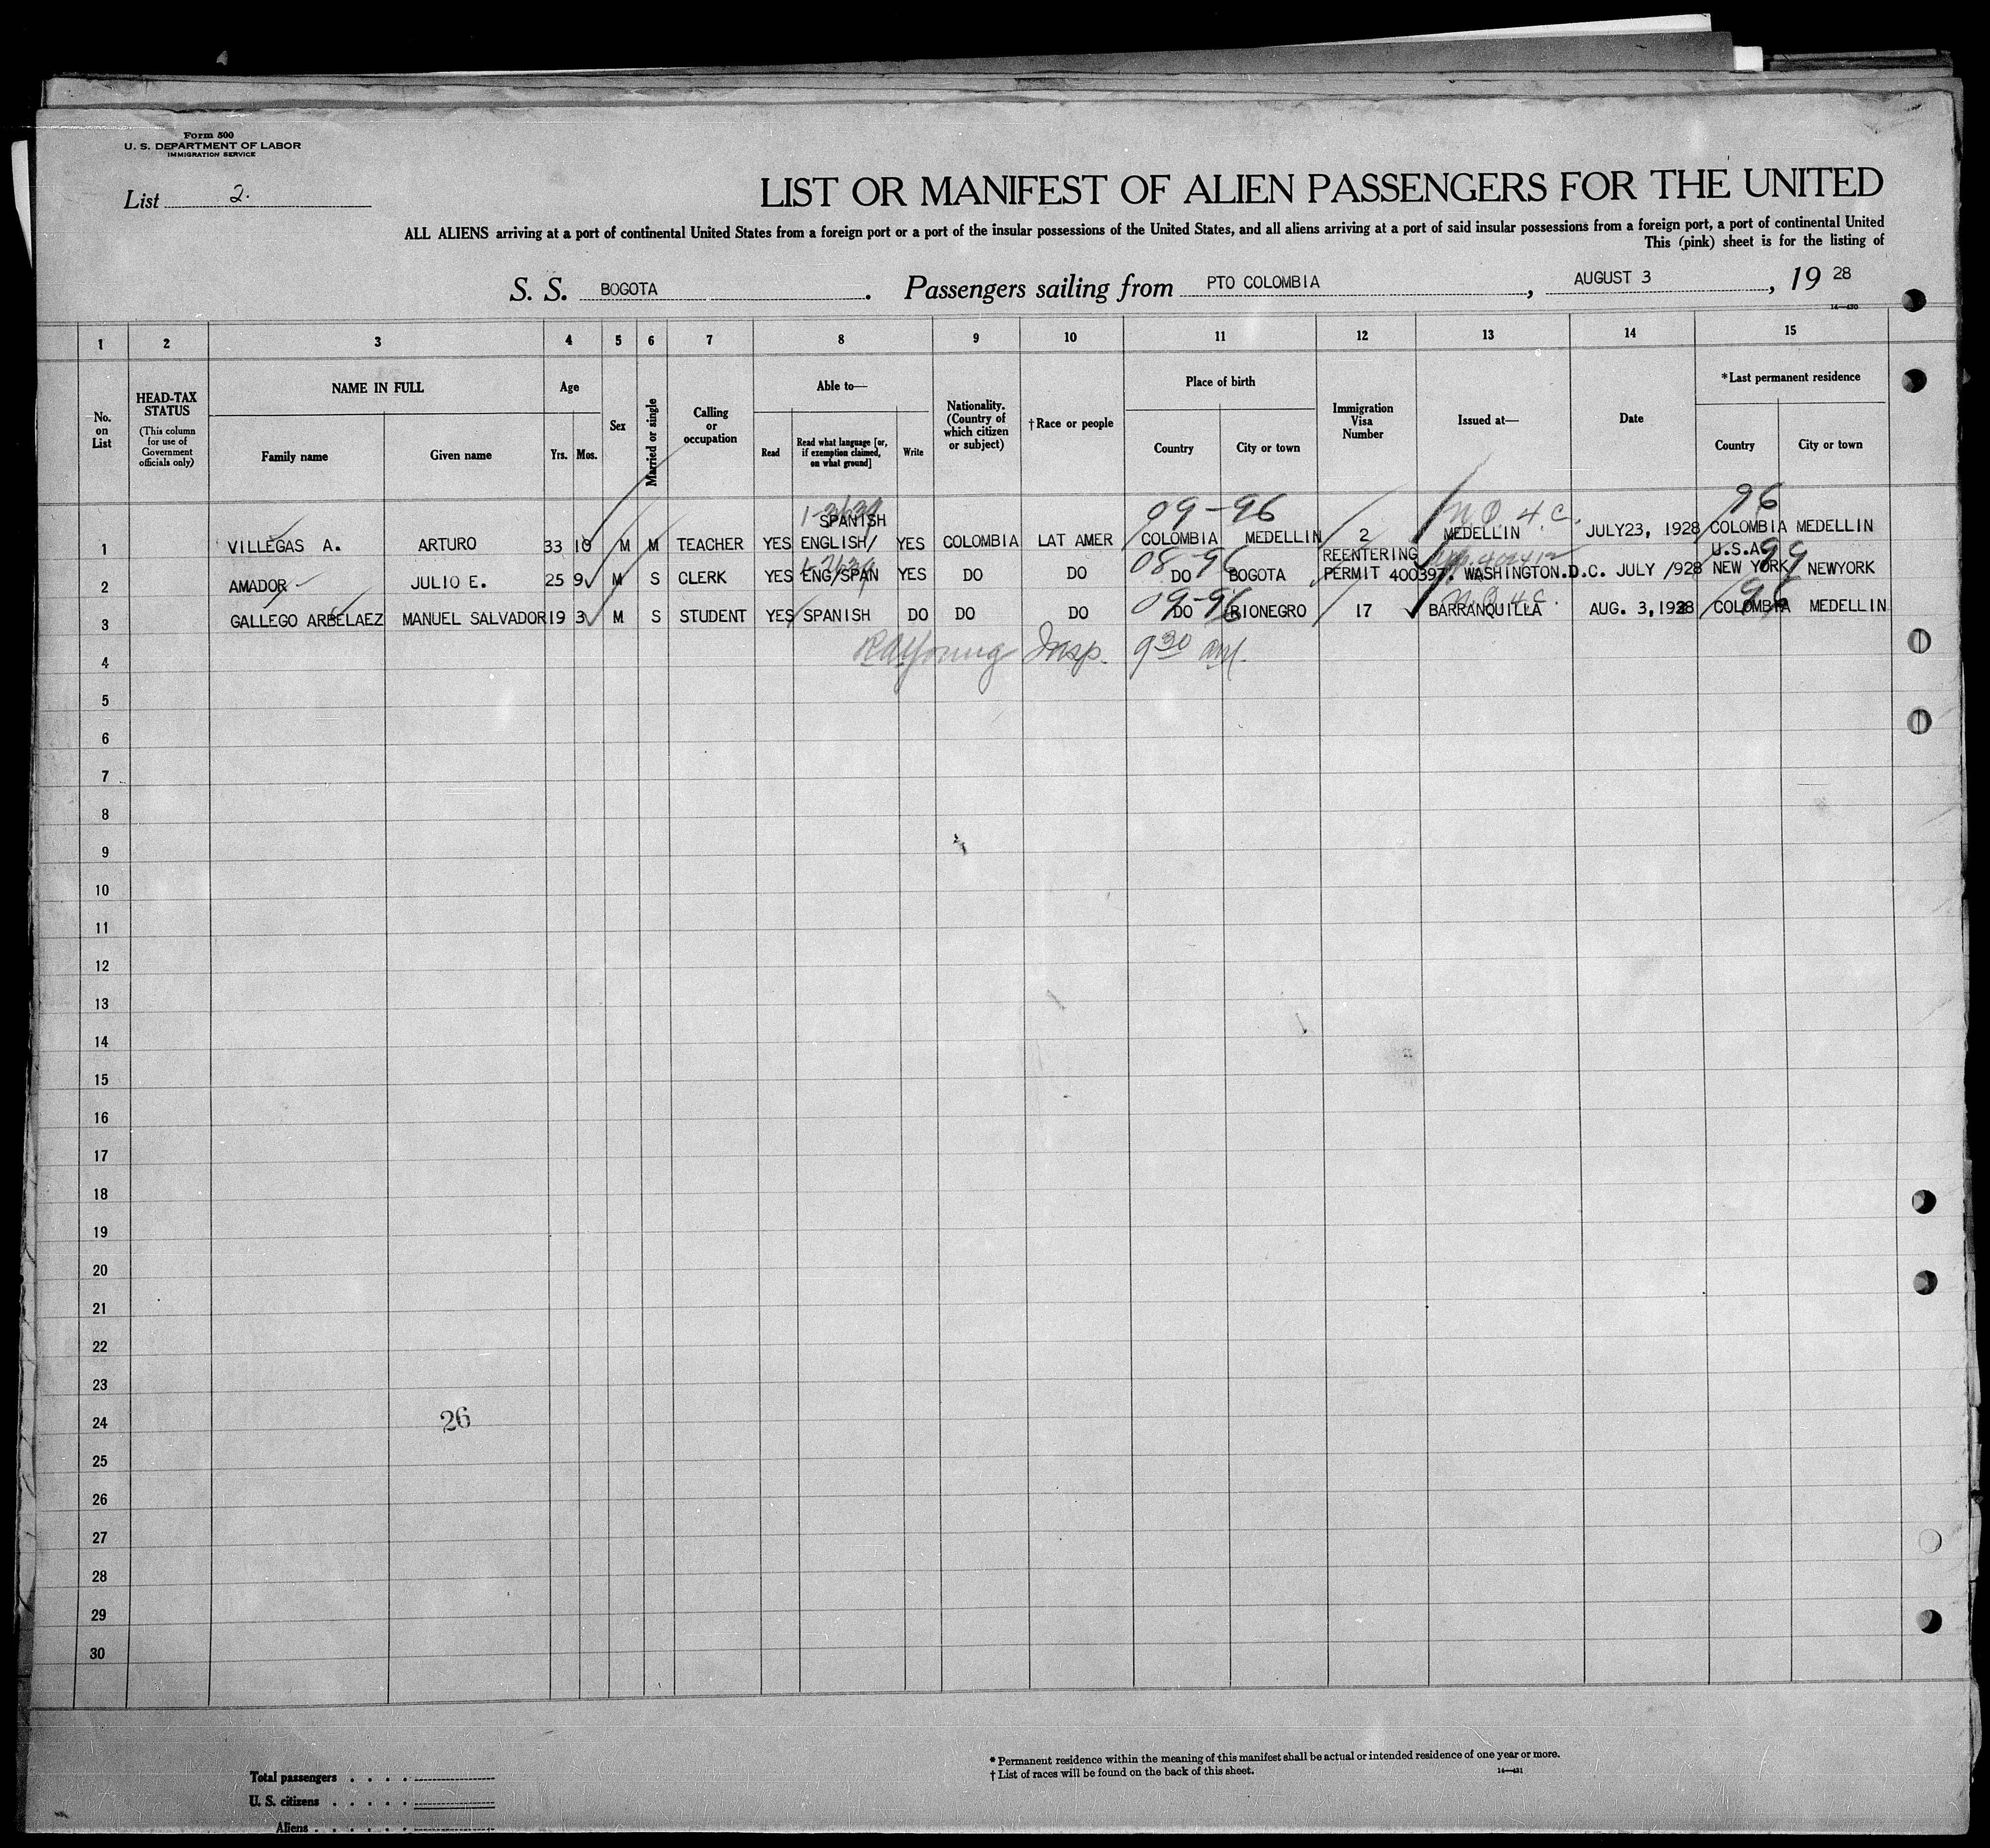 Form 500
U. S. DEPARTMENT OF LABOR
IMMIGRATION SERVICE
List 2.
LIST OR MANIFEST OF ALIEN PASSENGERS FOR THE UNITED
ALL ALIENS arriving at a port of continental United States from a foreign port or a port of the insular possessions of the United States, and all aliens arriving at a port of said insular possessions from a foreign port, a port of continental United
This (pink) sheet is for the listing of
S. S. BOGOTA. Passengers sailing from PTO COLOMBIA, AUGUST 3, 19 28
14—430
1 2 3 4 5 6 7 8 9 10 11 12 13 14 15
No. on List
HEAD-TAX STATUS
(This column for use of Government officials only)
NAME IN FULL
Family name Given name
Age
Yrs. Mos.
Sex
Married or single
Calling or occupation
Able to—
Read
Read what language [or, if exemption claimed, on what ground]
Write
Nationality. (Country of which citizen or subject)
† Race or people
Place of birth
Country City or town
Immigration Visa Number
Issued at—
Date
*Last permanent residence
Country City or town
09-96 96
SPANISH
1 VILLEGAS A. ARTURO 33 10 M M TEACHER YES ENGLISH/ YES COLOMBIA LAT AMER COLOMBIA MEDELLIN 2 MEDELLIN JULY23, 1928 COLOMBIA MEDELLIN
08-96 REENTERING U.S.A. 99
2 AMADOR JULIO E. 25 9 M S CLERK YES ENG/SPAN YES DO DO DO BOGOTA PERMIT 400397. WASHINGTON.D.C. JULY /928 NEW YORK NEWYORK
09-96 96
3 GALLEGO ARBELAEZ MANUEL SALVADOR 19 3 M S STUDENT YES SPANISH DO DO DO DO RIONEGRO 17 BARRANQUILLA AUG. 3, 1928 COLOMBIA MEDELLIN
4 Young Insp. 9 30 am.
5
6
7
8
9
10
11
12
13
14
15
16
17
18
19
20
21
22
23
24 26
25
26
27
28
29
30
* Permanent residence within the meaning of this manifest shall be actual or intended residence of one year or more.
† List of races will be found on the back of this sheet.
14—431
Total passengers . . . .
U. S. citizens . . . . .
Aliens . . . . . .